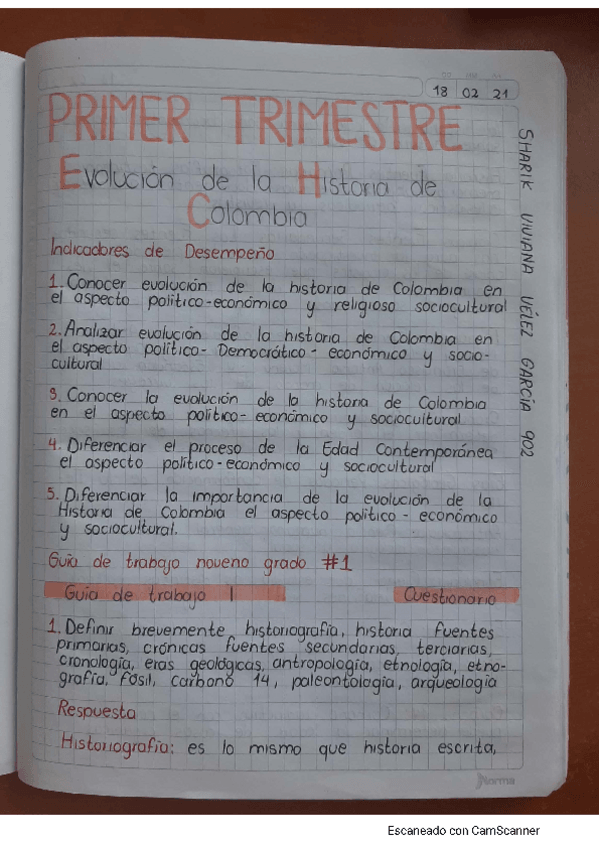 18 02 21
PRIMER TRIMESTRE
Evolución de la Historia de
Colombia
Indicadores de Desempeño
1. Conocer evolución de la historia de Colombia en
el aspecto politico-económico y religioso sociocultural
2. Analizar evolución de la historia de Colombia en
el aspecto político- Democrático - económico y socio-
cultural
3. Conocer la evolución de la historia de Colombia
en el aspecto político- económico y sociocultural
4. Diferenciar el proceso de la Edad Contemporánea
el aspecto político-económico y sociocultural
5. Diferenciar la importancia de la evolución de la
Historia de Colombia el aspecto politico - económico
y sociocultural.
Guia de trabajo noveno grado #1
Guia de trabajo 1 Cuestionario
1. Definir brevemente historiografía, historia fuentes
primarias, crónicas fuentes secundarias, terciarias,
cronología, eras geológicas, antropología, etnología, etno-
grafía, fósil, carbono 14, paleontología, arqueología
Respuesta
Historiografía: es lo mismo que historia escrita,
SHARIK VIVIANA VÉLEZ GARCÍA 902
Norma
Escaneado con CamScanner